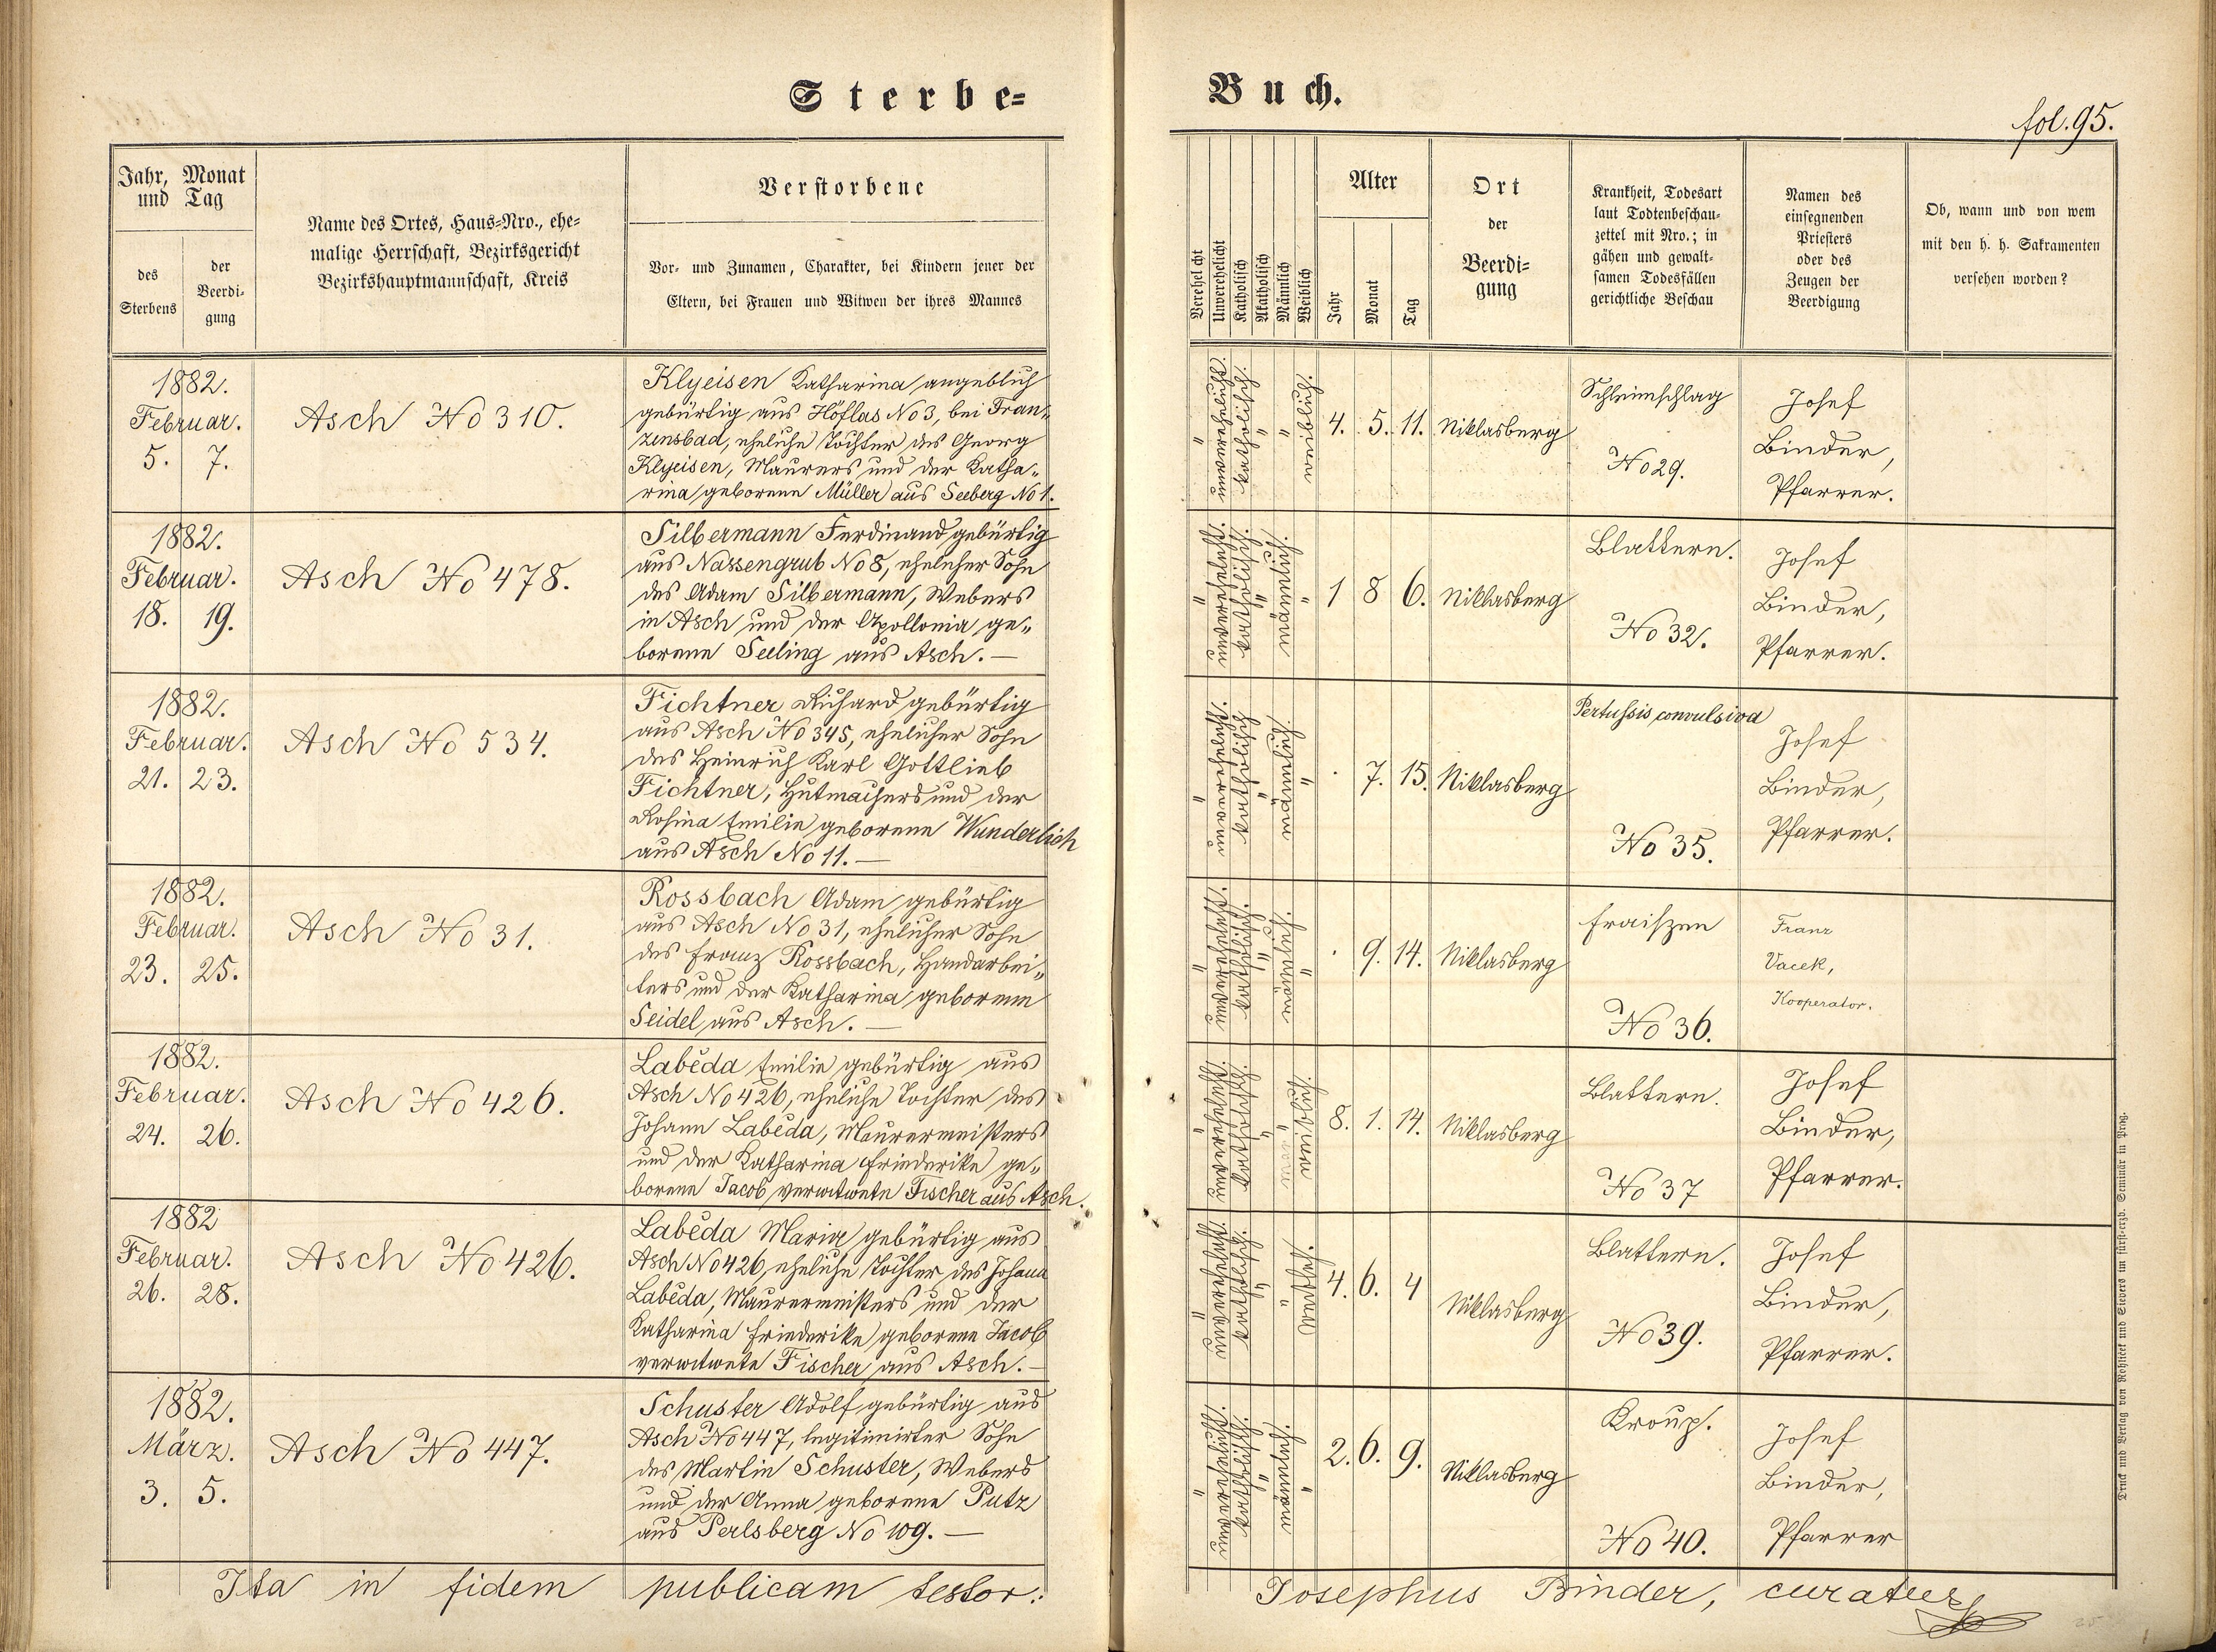 Sterbe-
Buch.
fol. 95.
Jahr, Monat
und Tag
des
Sterbens
der
Beerdi-
gung
Name des Ortes, Haus-Nro., ehe-
malige Herrschaft, Bezirksgericht
Bezirkshauptmannschaft, Kreis
Verstorbene
Vor- und Zunamen, Charakter, bei Kindern jener der
Eltern, bei Frauen und Witwen der ihres Mannes
Verehelicht
Unverehelicht
Katholisch
Akatholisch
Männlich
Weiblich
Alter
Jahr
Monat
Tag
Ort
der
Beerdi-
gung
Krankheit, Todesart
laut Todtenbeschau-
zettel mit Nro.; in
gähen und gewalt-
samen Todesfällen
gerichtliche Beschau
Namen des
einsegnenden
Priesters
oder des
Zeugen der
Beerdigung
Ob, wann und von wem
mit den h. h. Sakramenten
versehen worden?
1882.
Februar.
5. 7.
Asch No 310.
Klyeisen Katharina angeblich
gebürtig aus Höflas No 3, bei Fran„
zensbad, eheliche Tochter des Georg
Klyeisen, Maurers und der Katha„
rina geborene Müller aus Seeberg No 1.
" unverehelicht. katholisch. " " weiblich.
4. 5. 11. Niklasberg
Schleimschlag
No 29.
Josef
Binder,
Pfarrer.
1882.
Februar.
18. 19.
Asch No 478.
Silbermann Ferdinand gebürtig
aus Nassengrub No 8, ehelicher Sohn
des Adam Silbermann, Webers
in Asch und der Apollonia ge„
borene Seeling aus Asch. —
" unverehelicht. katholisch. " männlich. "
1 8 6. Niklasberg
Blattern.
No 32.
Josef
Binder,
Pfarrer.
1882.
Februar.
21. 23.
Asch No 534.
Fichtner Richard gebürtig
aus Asch No 345, ehelicher Sohn
des Heinrich Karl Gottlieb
Fichtner, Hutmachers und der
Rosina Emilie geborene Wunderlich
aus Asch No 11. —
" unverehelicht. katholisch " männlich. "
. 7. 15. Niklasberg
Pertussis convulsiva
No 35.
Josef
Binder,
Pfarrer.
1882.
Februar.
23. 25.
Asch No 31.
Rossbach Adam gebürtig
aus Asch No 31, ehelicher Sohn
des Franz Rossbach, Handarbei„
ters und der Katharina geborene
Seidel aus Asch. —
" unverehelicht. katholisch. " männlich. "
. 9. 14. Niklasberg
Fraiszen
No 36.
Franz
Vacek,
Kooperator.
1882.
Februar.
24. 26.
Asch No 426.
Labĕda Emilie gebürtig aus
Asch No 426, eheliche Tochter des
Johann Labĕda, Maurermeisters
und der Katharina Friederike ge„
borene Jacob, verwitwete Fischer aus Asch.
" unverehelicht. katholisch. " " weiblich.
8. 1. 14. Niklasberg
Blattern.
No 37
Josef
Binder,
Pfarrer.
1882
Februar.
26. 28.
Asch No 426.
Labĕda Maria gebürtig aus
Asch No 426, eheliche Tochter des Johann
Labĕda, Maurermeisters und der
Katharina Friederike geborene Jacob
verwitwete Fischer aus Asch. —
" unverehelicht. katholisch. " " weiblich.
4. 6. 4 Niklasberg
Blattern.
No 39.
Josef
Binder,
Pfarrer.
1882.
März.
3. 5.
Asch No 447.
Schuster Adolf gebürtig aus
Asch No 447, legitimirter Sohn
des Martin Schuster, Webers
und der Anna geborene Putz
aus Perlsberg No 109. —
" unverehelicht. katholisch. " männlich. "
2. 6. 9. Niklasberg
Kroup.
No 40.
Josef
Binder,
Pfarrer
Ita in fidem publicam testor:
Josephus Binder, curatus
Druck und Verlag von Rohliček und Sievers im fürst-erzb. Seminär in Prag.